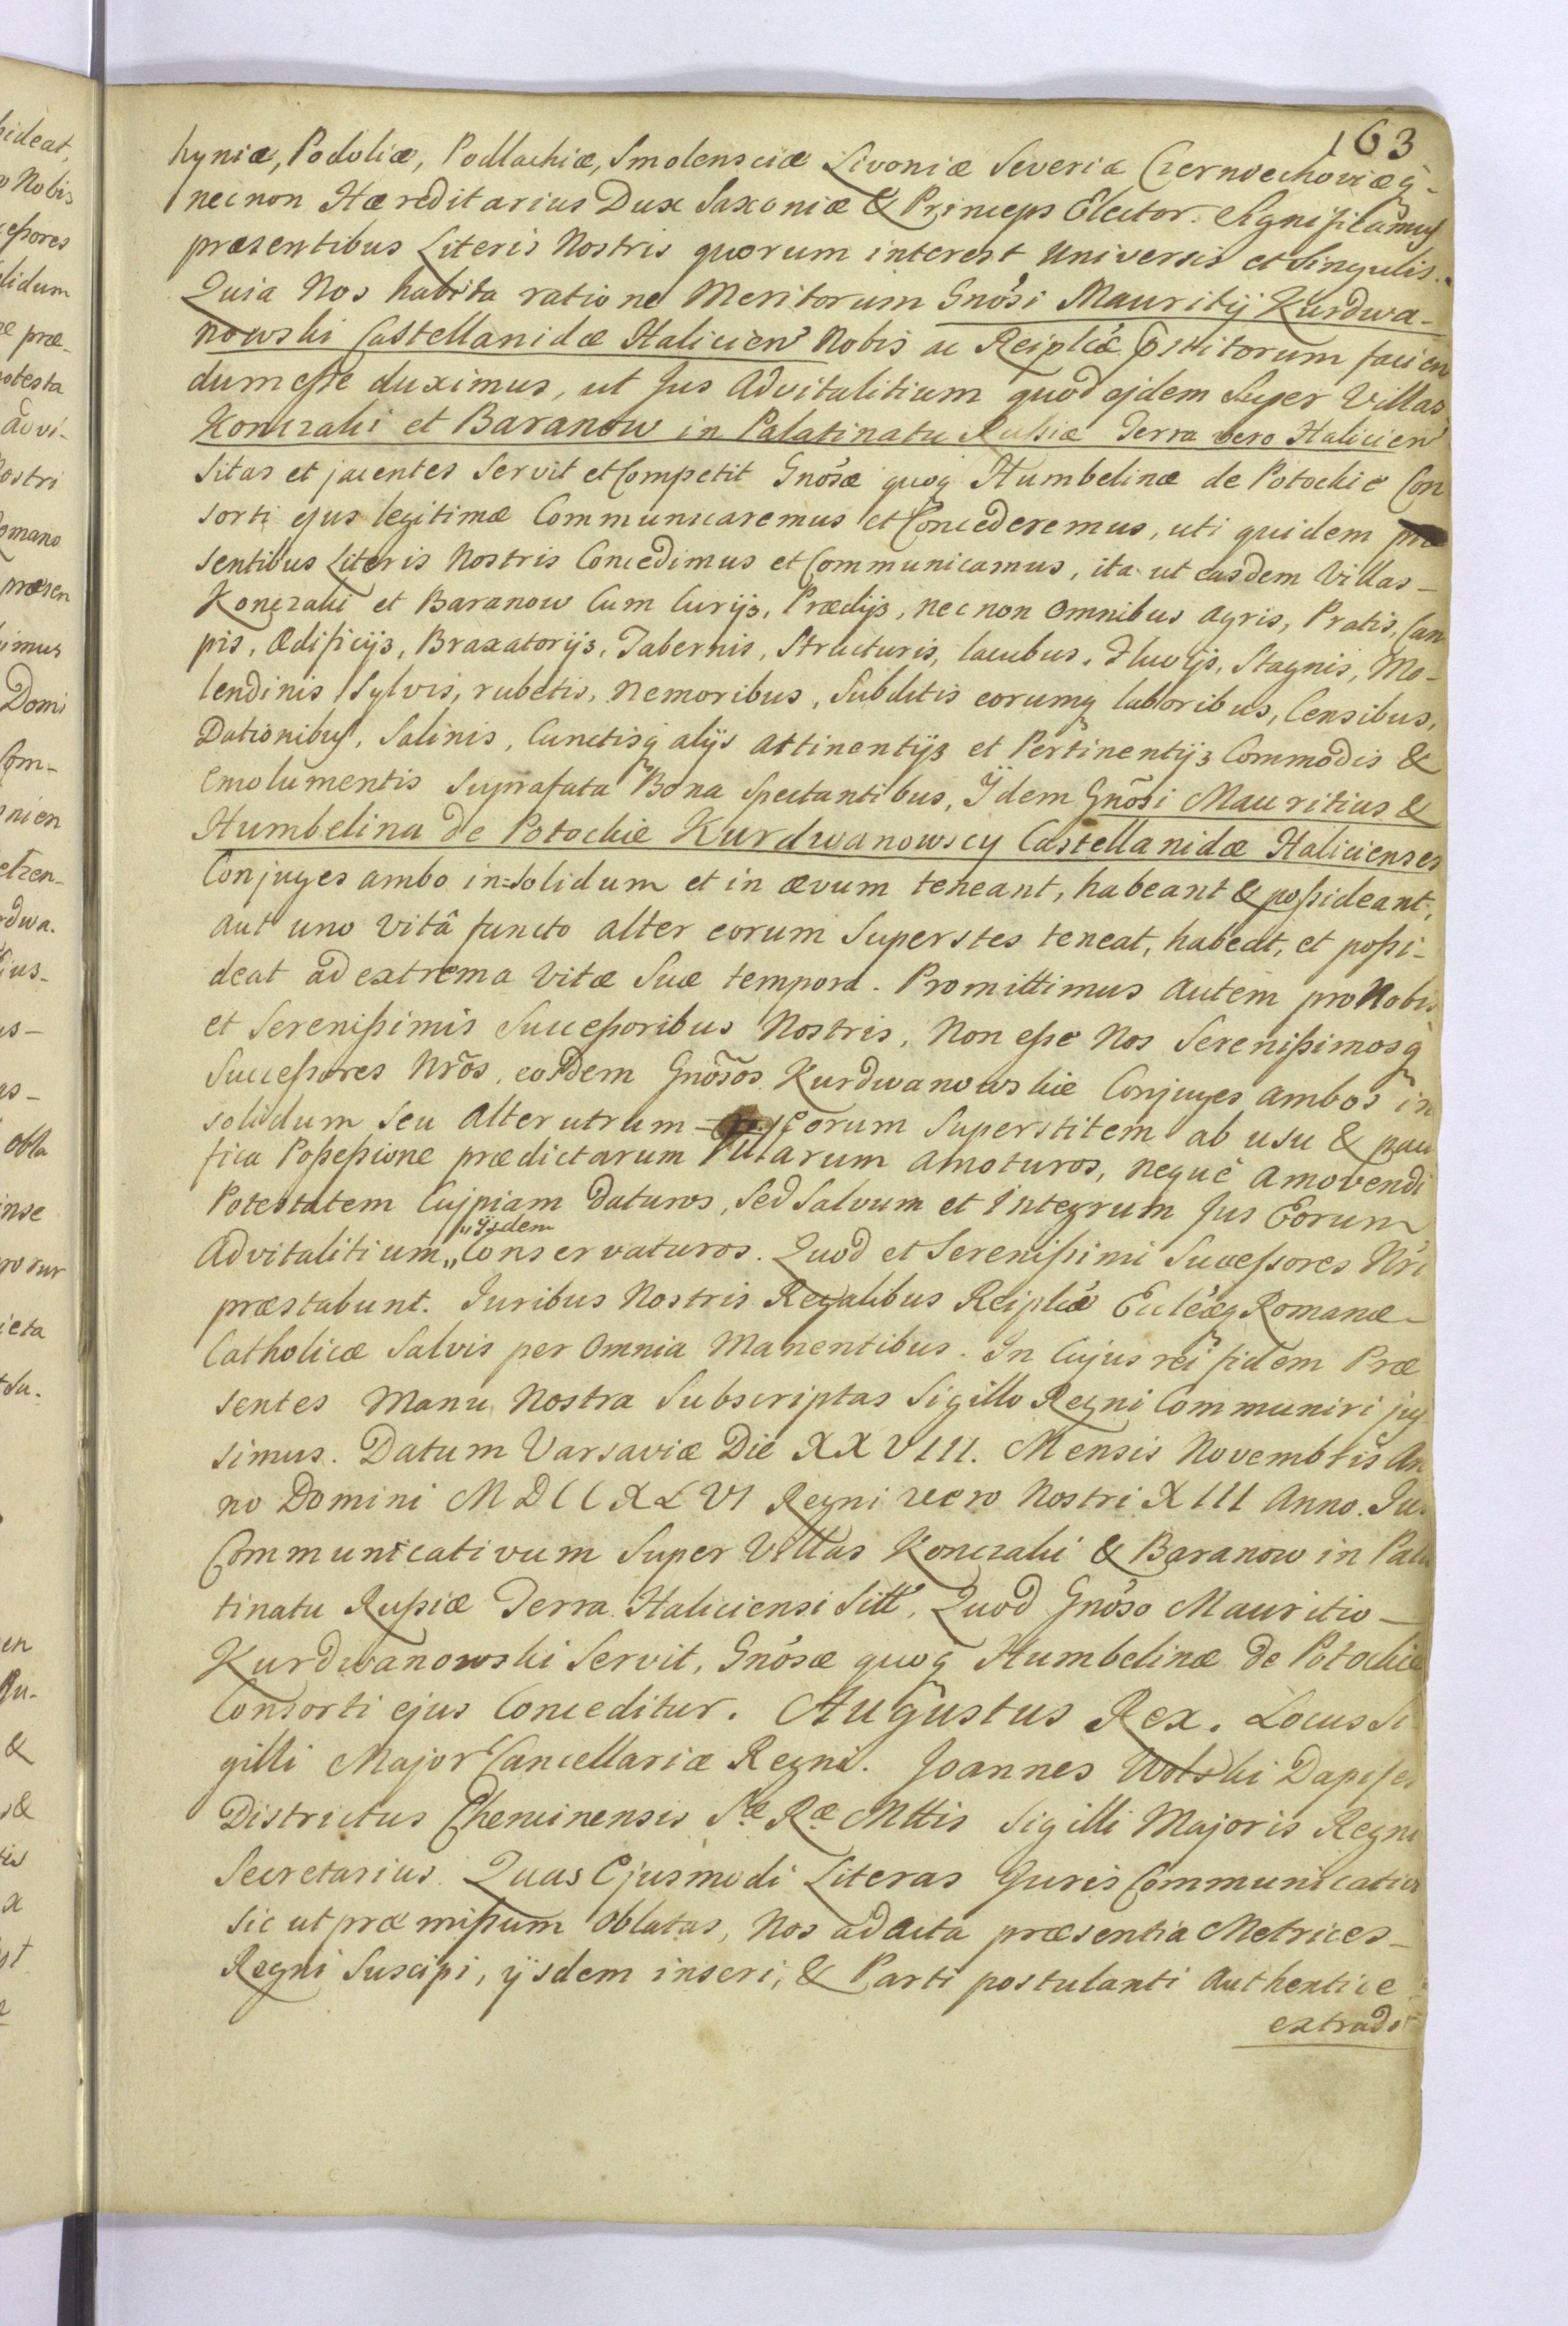 163
hyniæ, Podoliæ, Podlachiæ, Smolensciæ Livoniæ Severiæ Czernvechoviæq̃-
necnon Hæreditarius Dux Saxoniæ & Princeps Elector. Significamus
præsentibus Literis Nostris quorum interest Universis et Singulis.
Quia Nos habita ratione Meritorum Gnósi Mauritij Kurdwa-
nowski Castellanidæ Halicien̕ Nobis ac Reiplicæ præstitorum facien
dum esse duximus, ut Jus Advitalitium quod ejdem Super Villas
Konczaki et Baranow in Palatinatu Russiæ Terra vero Halicien̕
Sitas et jacentes Servit et Competit Gnósæ quoq̃ Humbelinæ de Potockie Con
sorti ejus legitimæ Communicaremus et Concederemus, uti quidem præ
sentibus Literis Nostris Concedimus et Communicamus, ita ut easdem Villas-
Konczaki et Baranow Cum Curijs, Prædijs, necnon Omnibus Agris, Pratis, Cam
pis, Ædificijs, Braxatorijs, Tabernis, Structuris, lacubus, Fluvijs, Stagnis, Mo-
lendinis Sylvis, rubetis, Nemoribus, Subditis eorumq̃ laboribus, Censibus,
Dationibus, Salinis, Cunctisq̃ alijs attinentijs et Pertinentijs Commodis &
emolumentis Suprafata Bona Spectantibus, Ijdem Gnõsi Mauritius &
Humbelina de Potockie Kurdwanowscy Castellanidæ Halicienses
Conjuges ambo in=solidum et in ævum teneant, habeant & possideant,
aut uno Vitâ functo alter eorum Superstes teneat, habeat, et possi-
deat ad extrema Vitæ Suæ tempora. Promittimus autem pro Nobis
et Serenissimis Successoribus Nostris, Non esse Nos Serenissimosq̃
Successores Nrõs, eosdem Gnõsos Kurdwanowskie Conjuges ambos in
solidum seu alterutrum= eorum Superstitem ab usu & paci
fica Possessione prædictarum Villarum amoturos, nequè amovendi
Potestatem Cujpiam Daturos, Sed Salvum et Integrum Jus Eorum
" ijsdem
Advitalitium„ Conservaturos. Quod et Serenissimi Successores Nri
præstabunt. Juribus Nostris Regalibus Reiplicæ Eccleæq̃ Romanæ-
Catholicæ Salvis per Omnia Manentibus. In Cujus rei fidem Præ
sentes Manu Nostra Subscriptas Sigillo Regni Communiri jus
simus. Datum Varsaviæ Die XXVIII. Mensis Novembris An
no Domini MDCCXLVI Regni vero Nostri XIII Anno. Jus
Communicativum Super Villas Konczaki & Baranow in Pala
tinatu Russiæ Terra Haliciensi Sitt̕. Quod Gnóso Mauritio-
Kurdwanowski Servit, Gnósæ quoq̃ Humbelinæ de Potockie
Consorti ejus Conceditur. Augustus Rex. Locus Si
gilli Major Cancellariæ Regni. Joannes Wolski Dapifer
Districtus Chencinensis Sæ Ræ Mttis Sigilli Majoris Regni
Secretarius. Quas Ejusmodi Literas Juris Communicativi
sic ut præmissum oblatas, Nos ad Acta præsentia Metrices-
Regni Suscipi, ijsdem inseri, & Parti postulanti Authentice
extradi